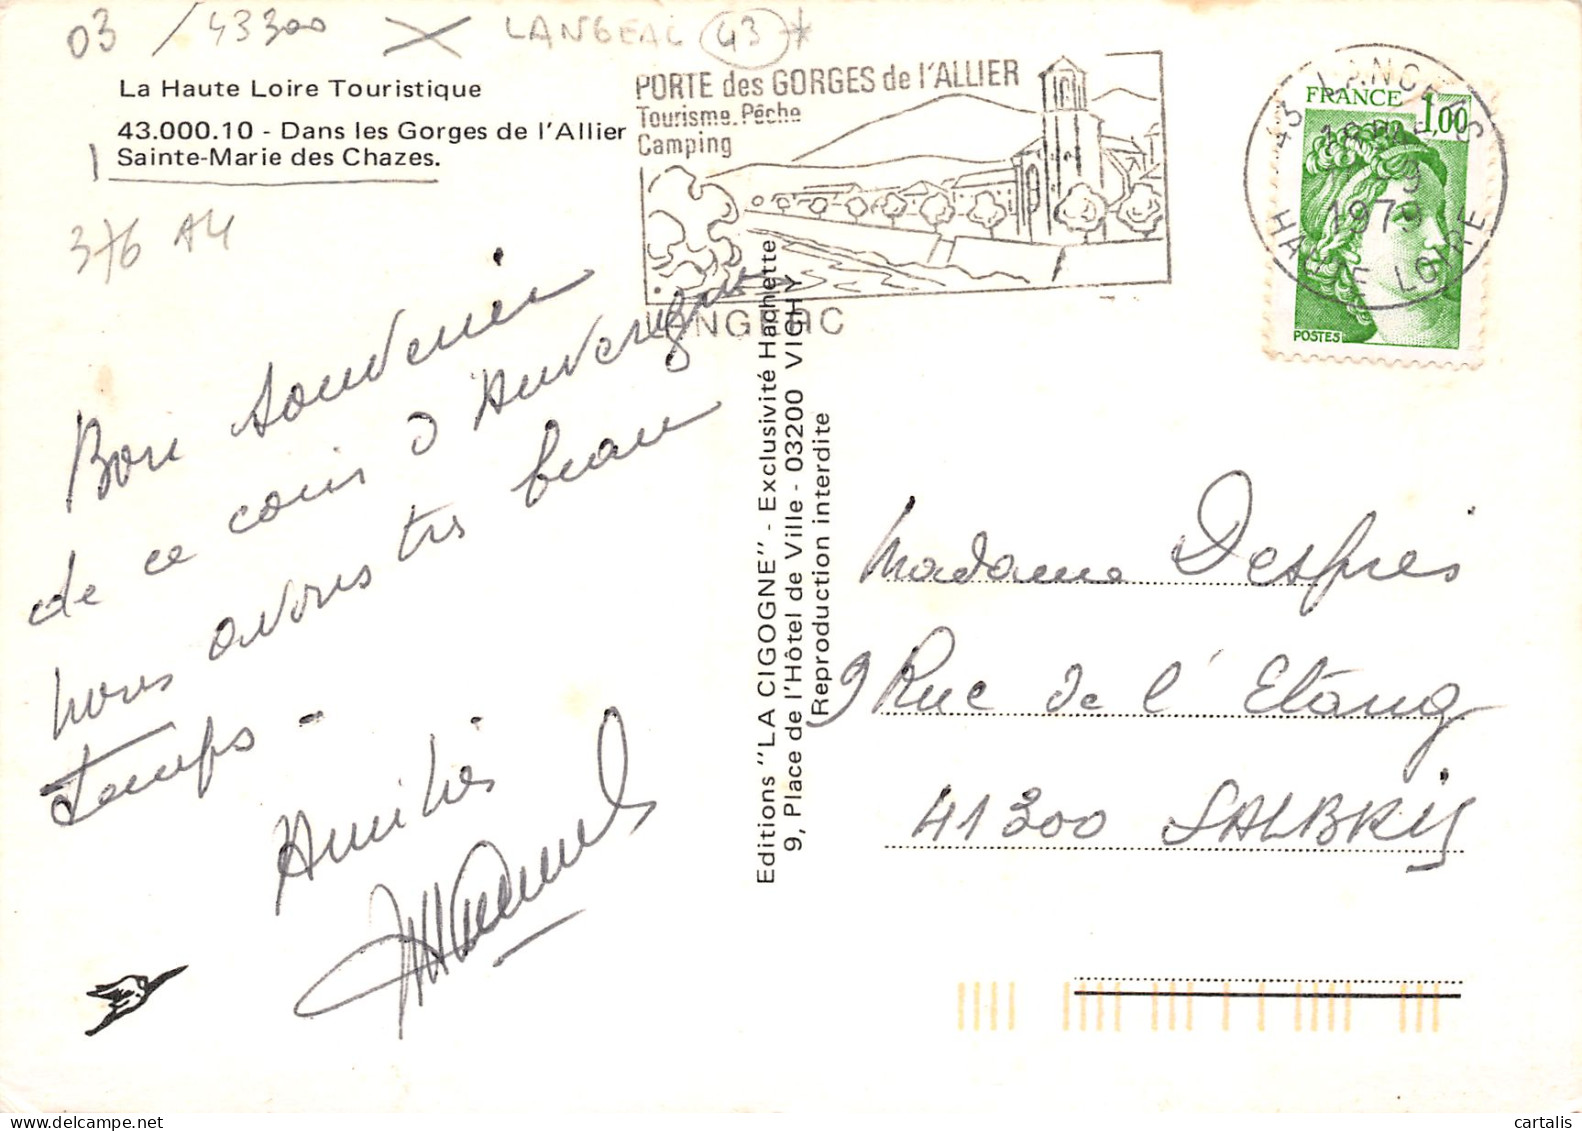 03 / 43300 LANGEAC 43 *
La Haute Loire Touristique
43.000.10 - Dans les Gorges de l'Allier
Sainte-Marie des Chazes.
376 A4
PORTE des GORGES de l'ALLIER
Tourisme. Pêche
Camping
LANGEAC
43 LANGEAC
1979
HAUTE LOIRE
FRANCE 1,00
POSTES
Bon souvenir
de ce coin d'Auvergne
nous avons très beau
temps -
Amitiés
Editions "LA CIGOGNE" - Exclusivité Hachette
9, Place de l'Hôtel de Ville - 03200 VICHY
Reproduction interdite
Madame Desprès
9 Rue de l'Etang
41300 SALBRIS